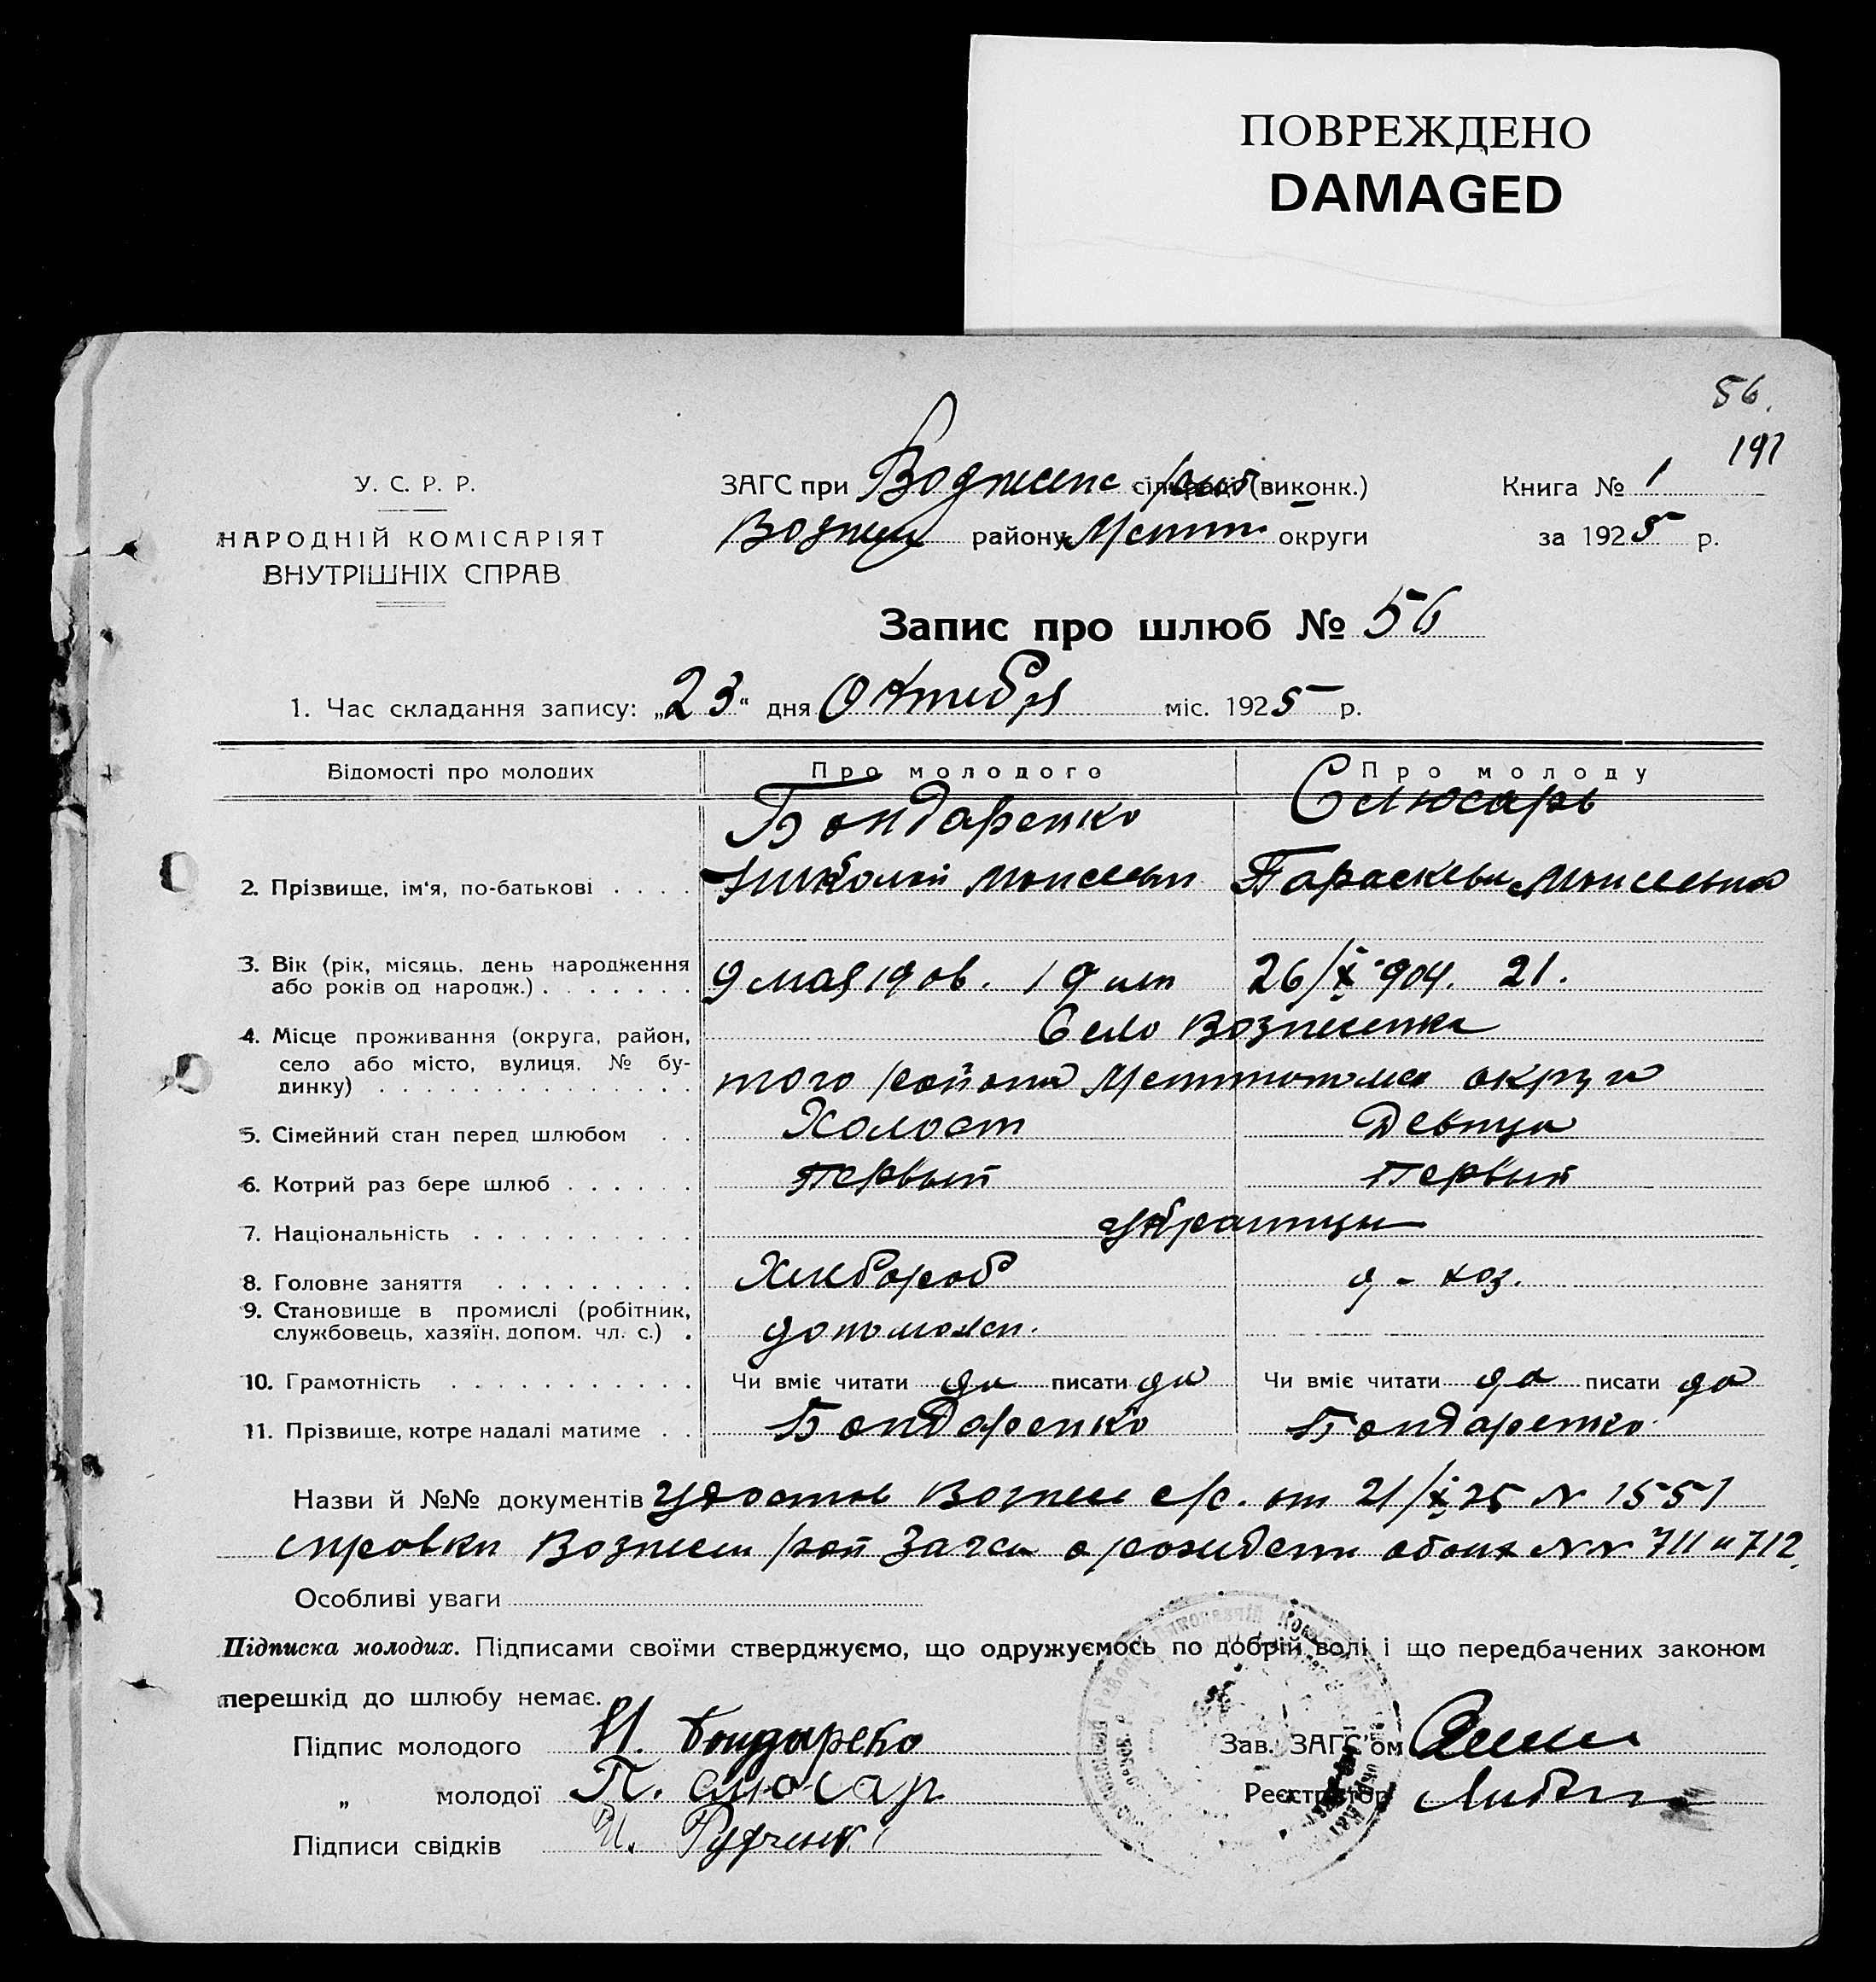 ПОВРЕЖДЕНО
DAMAGED
56.
191
У. С. Р. Р.
НАРОДНІЙ КОМІСАРІЯТ
ВНУТРІШНІХ СПРАВ
ЗАГС при Вознесенс (виконк.)
Вознесен району округи
Книга № 1
за 1925 р.
Запис про шлюб № 56
1. Час складання запису: „23“ дня Октября міс. 1925 р.
Відомості про молодих
Про молодого
Про молоду
2. Прізвище, ім'я, по-батькові
Бондаренко
Николай Моисеевич
Слюсарь
Параскева Моисеевна
3. Вік (рік, місяць, день народження
або років од народж.)
9 мая 1906. 19 лет
26/X 904. 21.
4. Місце проживання (округа, район,
село або місто, вулиця, № бу-
динку)
Село Вознесенка
того района округи
5. Сімейний стан перед шлюбом
Холост
Девица
6. Котрий раз бере шлюб
Первый
Первый
7. Національність
Украинцы
8. Головне заняття
Хлебороб
д-хоз.
9. Становище в промислі (робітник,
службовець, хазяїн, допом. чл. с.)
10. Грамотність
Чи вміє читати да писати да
Чи вміє читати да писати да
11. Прізвище, котре надалі матиме
Бондаренко
Бондаренко
Назви й №№ документів Удостов Вознес с/с. от 21/X 25 N 1551
справки Вознесен рай Загса о рождени обоих NN 711 и 712.
Особливі уваги
Підписка молодих. Підписами своїми стверджуємо, що одружуємось по добрій волі і що передбачених законом
перешкід до шлюбу немає.
Підпис молодого Н. Бондарено
„ молодої П. слюсар
Підписи свідків
Зав. ЗАГС'ом
Реєстратор